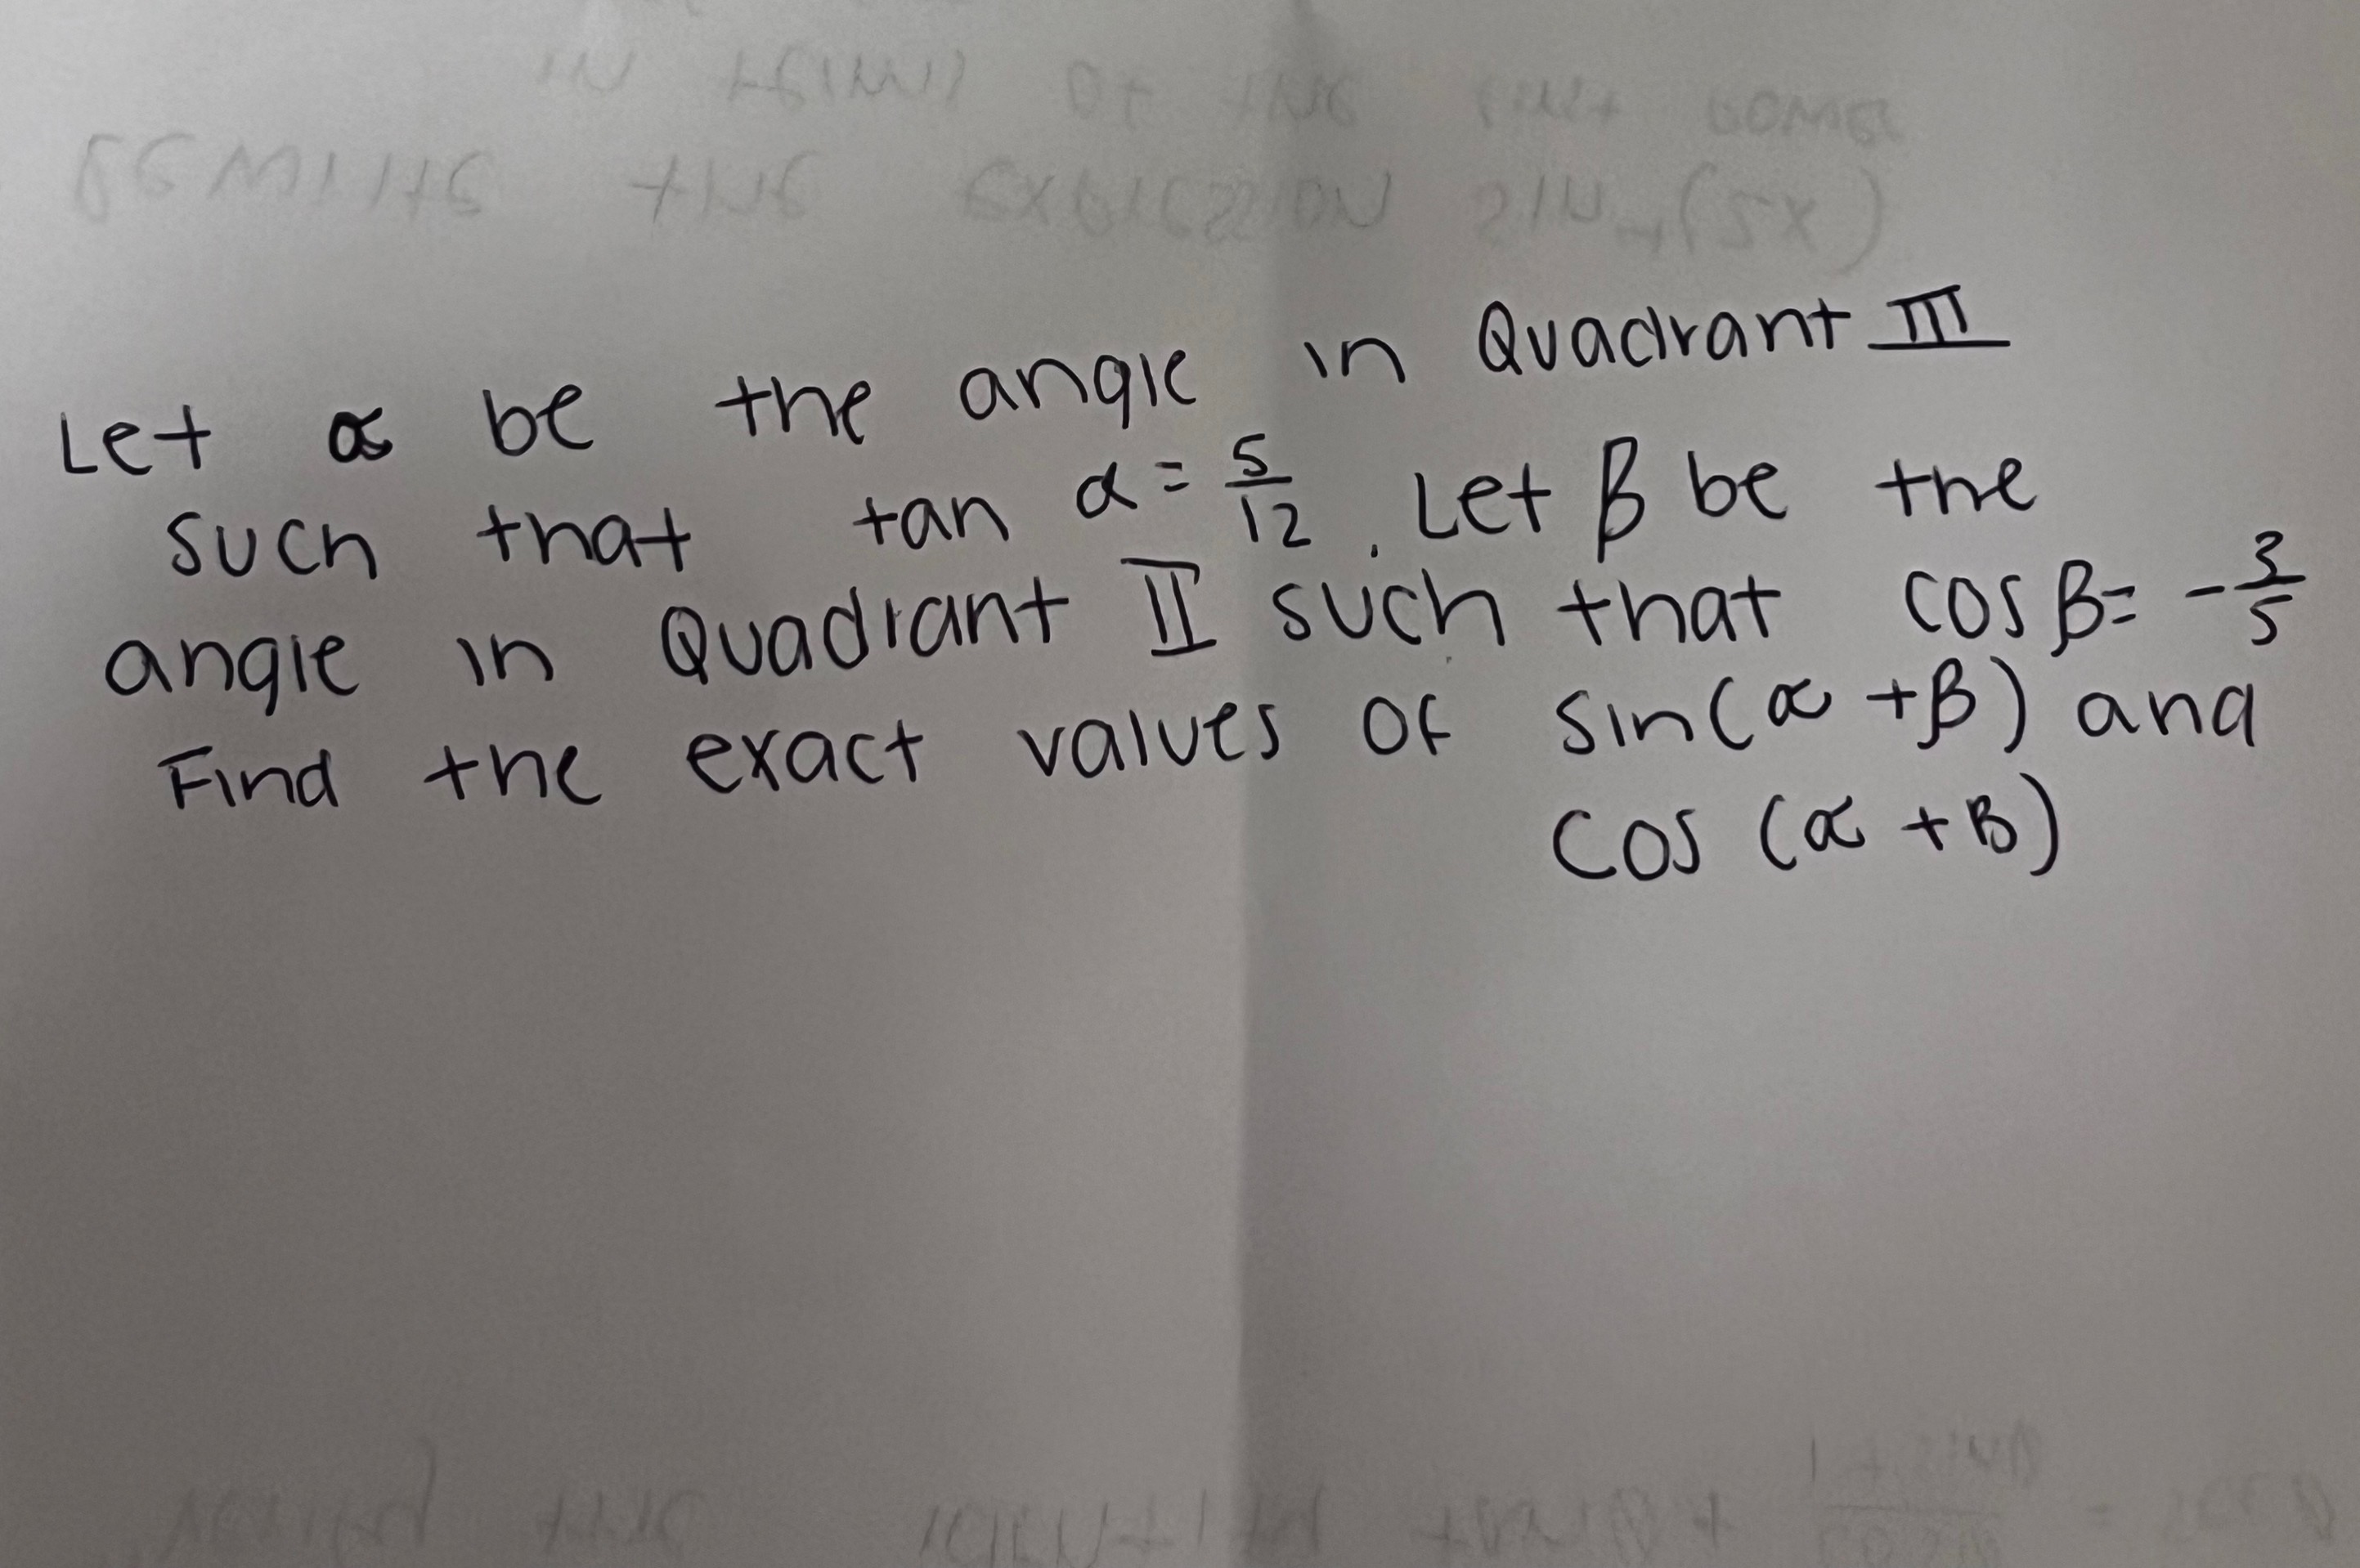 Let α be the angle in Quadrant III
such that tan α = 5/12 . Let β be the
angle in Quadrant II such that cos β = -3/5
Find the exact values of sin(α + β) and
cos (α + β)